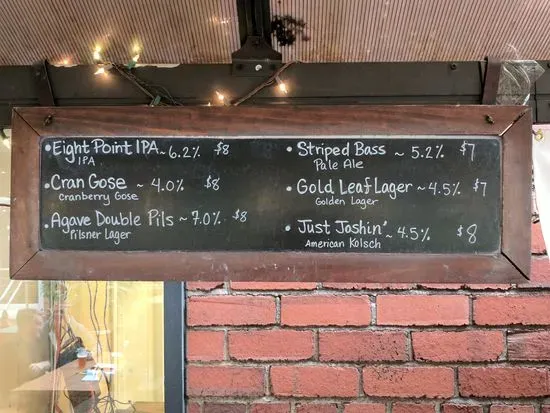 • Eight Point IPA ~ 6.2% $8
IPA
• Cran Gose ~ 4.0% $8
Cranberry Gose
Agave Double Pils ~ 7.0% $8
• Pilsner Lager
• Striped Bass ~ 5.2% $7
Pale Ale
• Gold Leaf Lager ~ 4.5% $7
Golden Lager
• Just Joshin' ~ 4.5% $8
American Kolsch